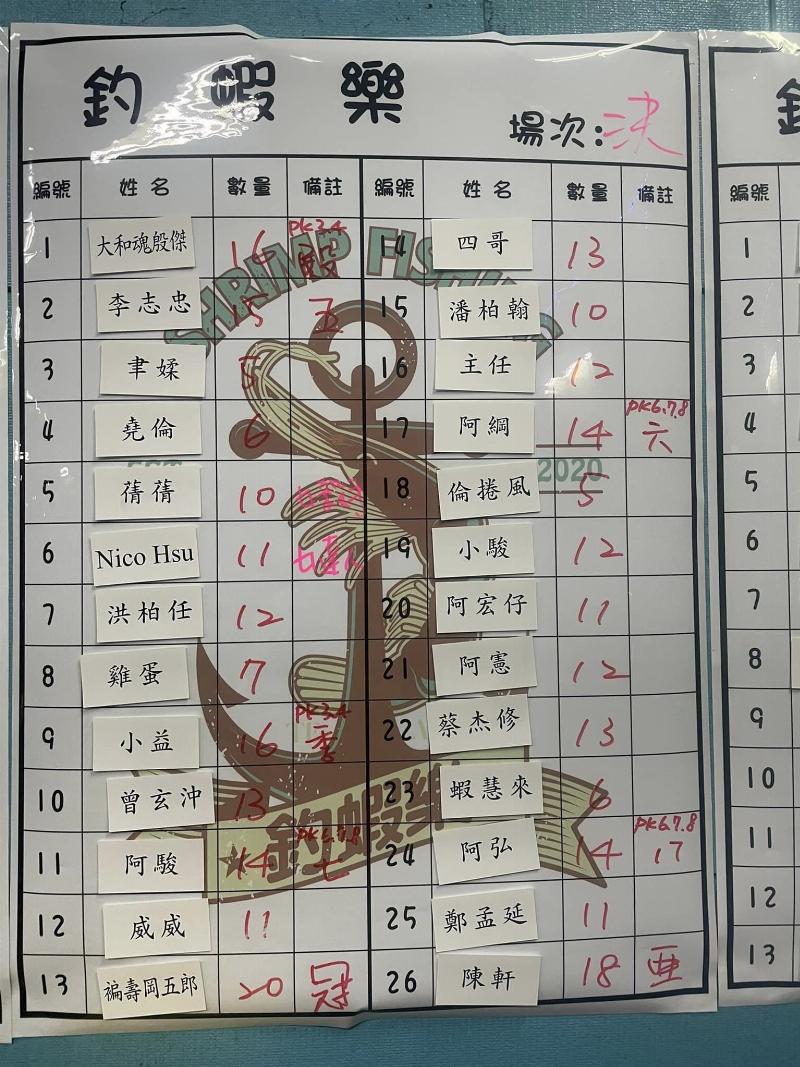 釣蝦樂
場次:決
編號 姓名 數量 備註 編號 姓名 數量 備註
1 大和魂殷傑 16 PK3.4 殿 14 四哥 13
2 李志忠 15 五 15 潘柏翰 10
3 聿媃 5 16 主任 12
4 堯倫 6 17 阿綱 14 PK6.7.8 六
5 蒨蒨 10 18 倫捲風 5
6 Nico Hsu 11 19 小駿 12
7 洪柏任 12 20 阿宏仔 11
8 雞蛋 7 21 阿憲 12
9 小益 16 PK3.4 季 22 蔡杰修 13
10 曾玄沖 13 23 蝦慧來 6
11 阿駿 14 PK6.7.8 七 24 阿弘 14 PK6.7.8 17
12 威威 11 25 鄭孟延 11
13 褊壽岡五郎 20 冠 26 陳軒 18 亞
SHRIMP FISHING
2020
釣蝦樂
編號
1
2
3
4
5
6
7
8
9
10
11
12
13